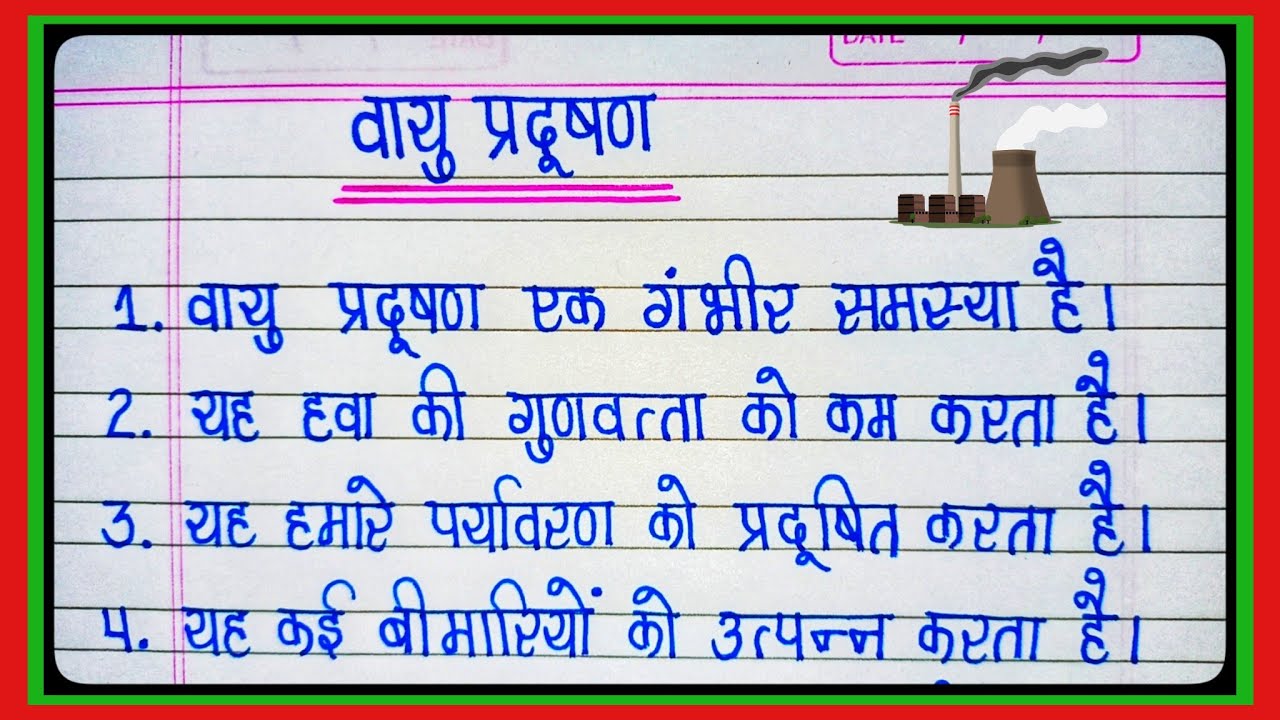 DATE / /
वायु प्रदूषण
1. वायु प्रदूषण एक गंभीर समस्या है।
2. यह हवा की गुणवत्ता को कम करता है।
3. यह हमारे पर्यावरण को प्रदूषित करता है।
4. यह कई बीमारियों को उत्पन्न करता है।